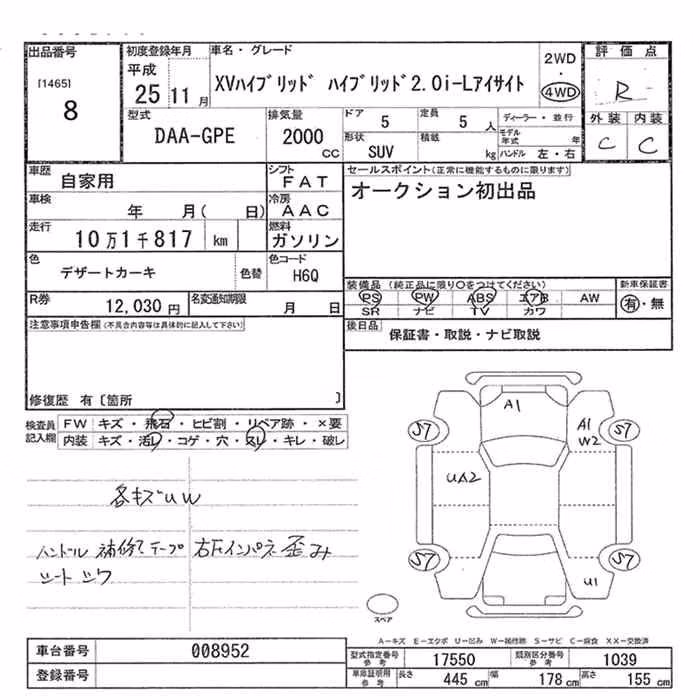 出品番号
[1465]
8
初度登録年月
平成
25 11 月
車名・グレード
XVハイブリッド ハイブリッド2.0i-Lアイサイト
2WD
・
4WD
評価点
R
外装 内装
C C
型式
DAA-GPE
排気量
2000
CC
ドア 5
定員 5 人
形状
SUV
積載
kg
ディーラー・並行
モデル年式 年
ハンドル 左・右
車歴
自家用
シフト
FAT
車検
年 月( 日)
冷房
AAC
走行
10万1千817 km
燃料
ガソリン
色
デザートカーキ
色替
色コード
H6Q
R券
12,030 円
名変通知期限
月 日
セールスポイント(正常に機能するものに限ります)
オークション初出品
装備品 (純正品に限り〇をつけてください)
PS PW ABS エアB AW
SR ナビ TV カワ
新車保証書
有・無
後日品
保証書・取説・ナビ取説
注意事項申告欄(不具合内容等は具体的に記入して下さい)
修復歴 有〔箇所 〕
検査員
記入欄
FW キズ・飛石・ヒビ割・リペア跡・×要
内装 キズ・汚レ・コゲ・穴・スレ・キレ・破レ
各キズUW
ハンドル 補修テープ
シート シワ
右Fインパネ歪み
A1
A1
W2
S7
S7
UA2
S7
S7
U1
スペア
A-キズ E-エクボ U-凹み W-補修跡 S-サビ C-腐食 XX-交換済
車台番号 008952
登録番号
型式指定番号
参考
17550
類別区分番号
参考
1039
車庫証明用
参考
長さ 445 cm
幅 178 cm
高さ 155 cm